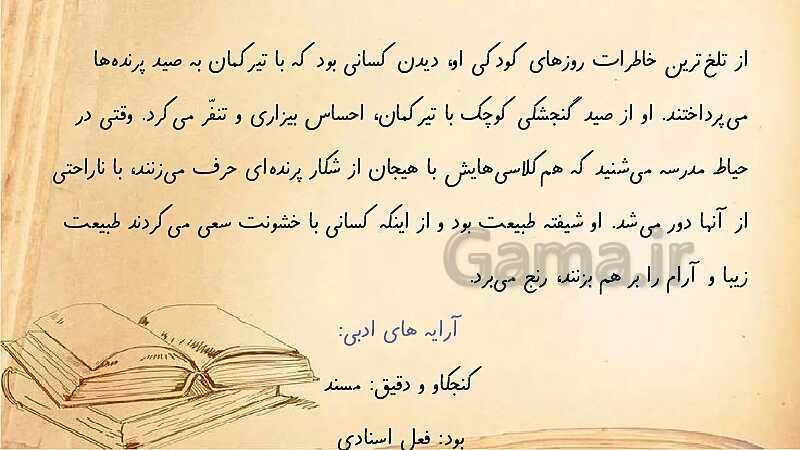 از تلخ‌ترین خاطرات روزهای کودکی او، دیدن کسانی بود که با تیرکمان به صید پرنده‌ها
می‌پرداختند. او از صید گنجشکی کوچک با تیرکمان، احساس بیزاری و تنفّر می‌کرد. وقتی در
حیاط مدرسه می‌شنید که هم‌کلاسی‌هایش با هیجان از شکار پرنده‌ای حرف می‌زنند، با ناراحتی
از آنها دور می‌شد. او شیفته طبیعت بود و از اینکه کسانی با خشونت سعی می‌کردند طبیعت
زیبا و آرام را بر هم بزنند، رنج می‌برد.
Gama.ir
آرایه های ادبی:
کنجکاو و دقیق: مسند
بود: فعل اسنادی